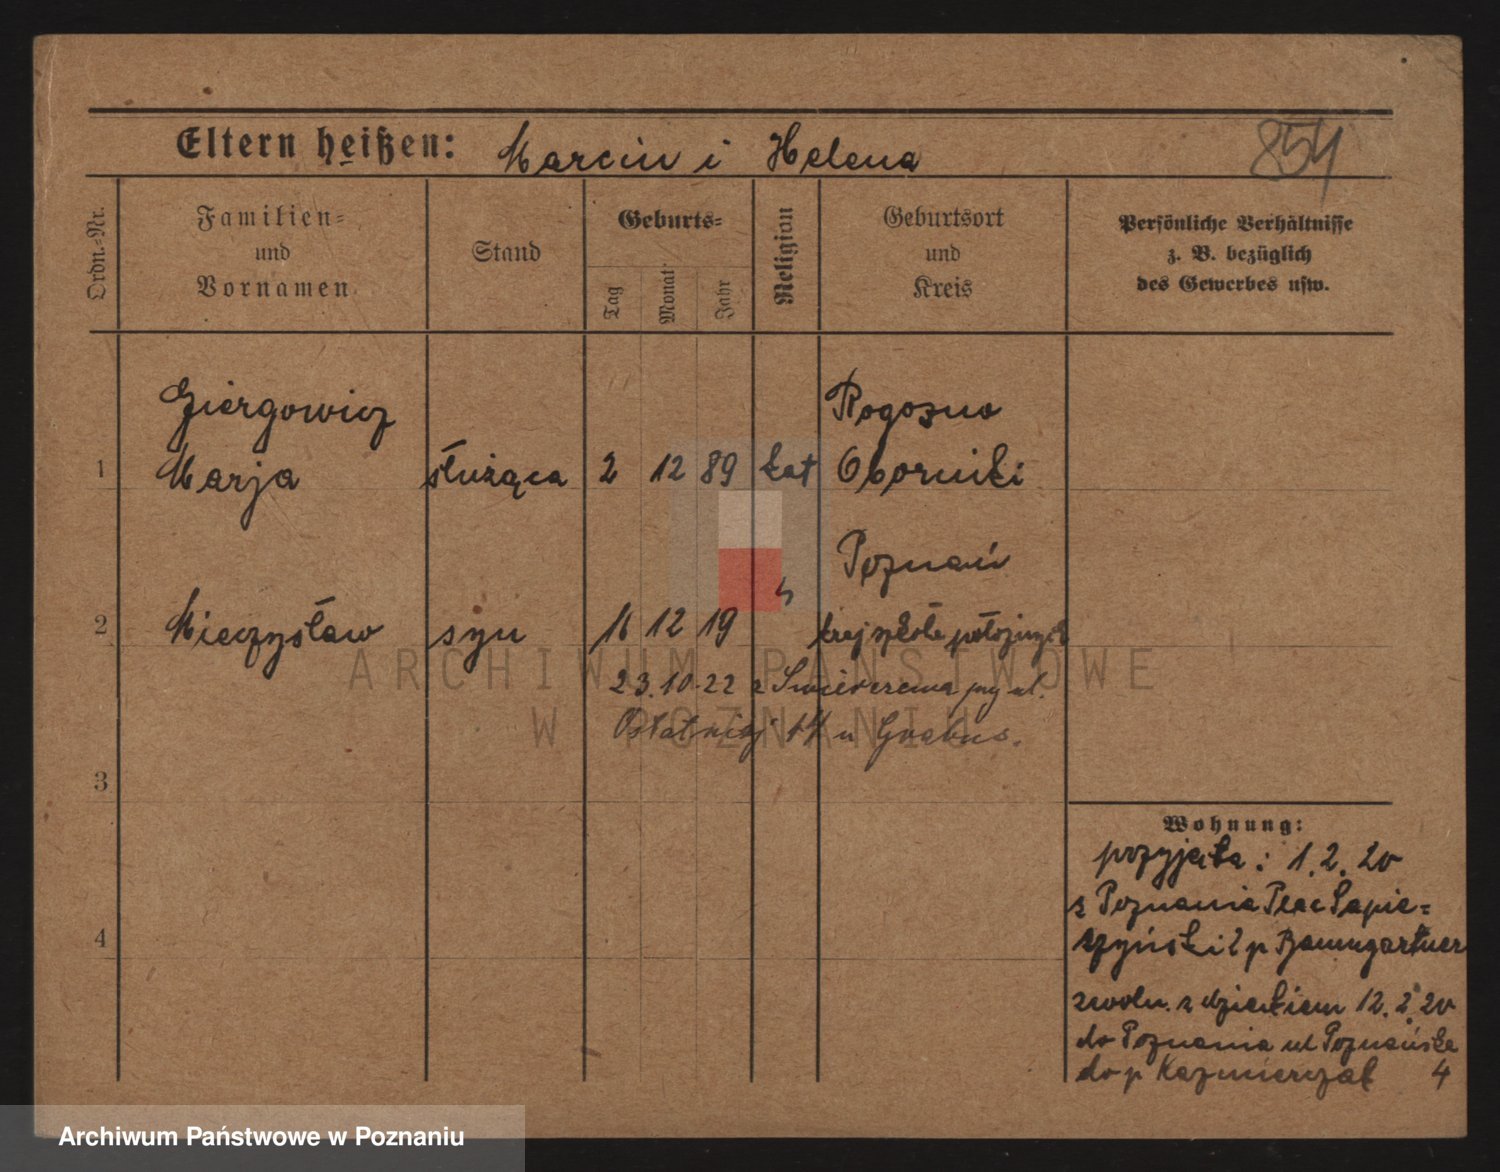 Eltern heißen: Marcin i Helena
854
Ordn.-Nr.
Familien-
und
Vornamen
Stand
Geburts-
Tag
Monat
Jahr
Religion
Geburtsort
und
Kreis
Persönliche Verhältnisse
z. B. bezüglich
des Gewerbes usw.
Giergowicz Rogozno
1 Marja służąca 2 12 89 kat Oborniki
Poznań
2 Mieczysław syn 16 12 19 " kraj szkoła położnych
23.10.22 z przy ul.
Ostatniej 14 u Grabus.
3
4
Wohnung:
przyjęta: 1.2.20
z Poznania Plac Sapie=
żyński 2 p Baumgartner
zwoln. z dzieckiem 12.2.20
do Poznania ul Poznańska
do p Kazmierczak 4
ARCHIWUM PAŃSTWOWE
W POZNANIU
Archiwum Państwowe w Poznaniu